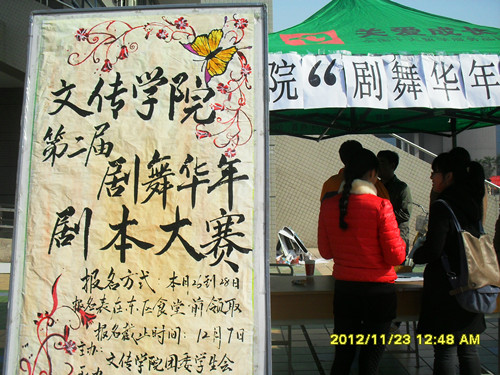 文传学院
第二届
剧舞华年
剧本大赛
报名方式 本月26到28日
报名表在东区食堂前领取
报名截止时间：12月7日
主办：
文传学院团委学生会
关爱成长
院“剧舞华年
2012/11/23 12:48 AM